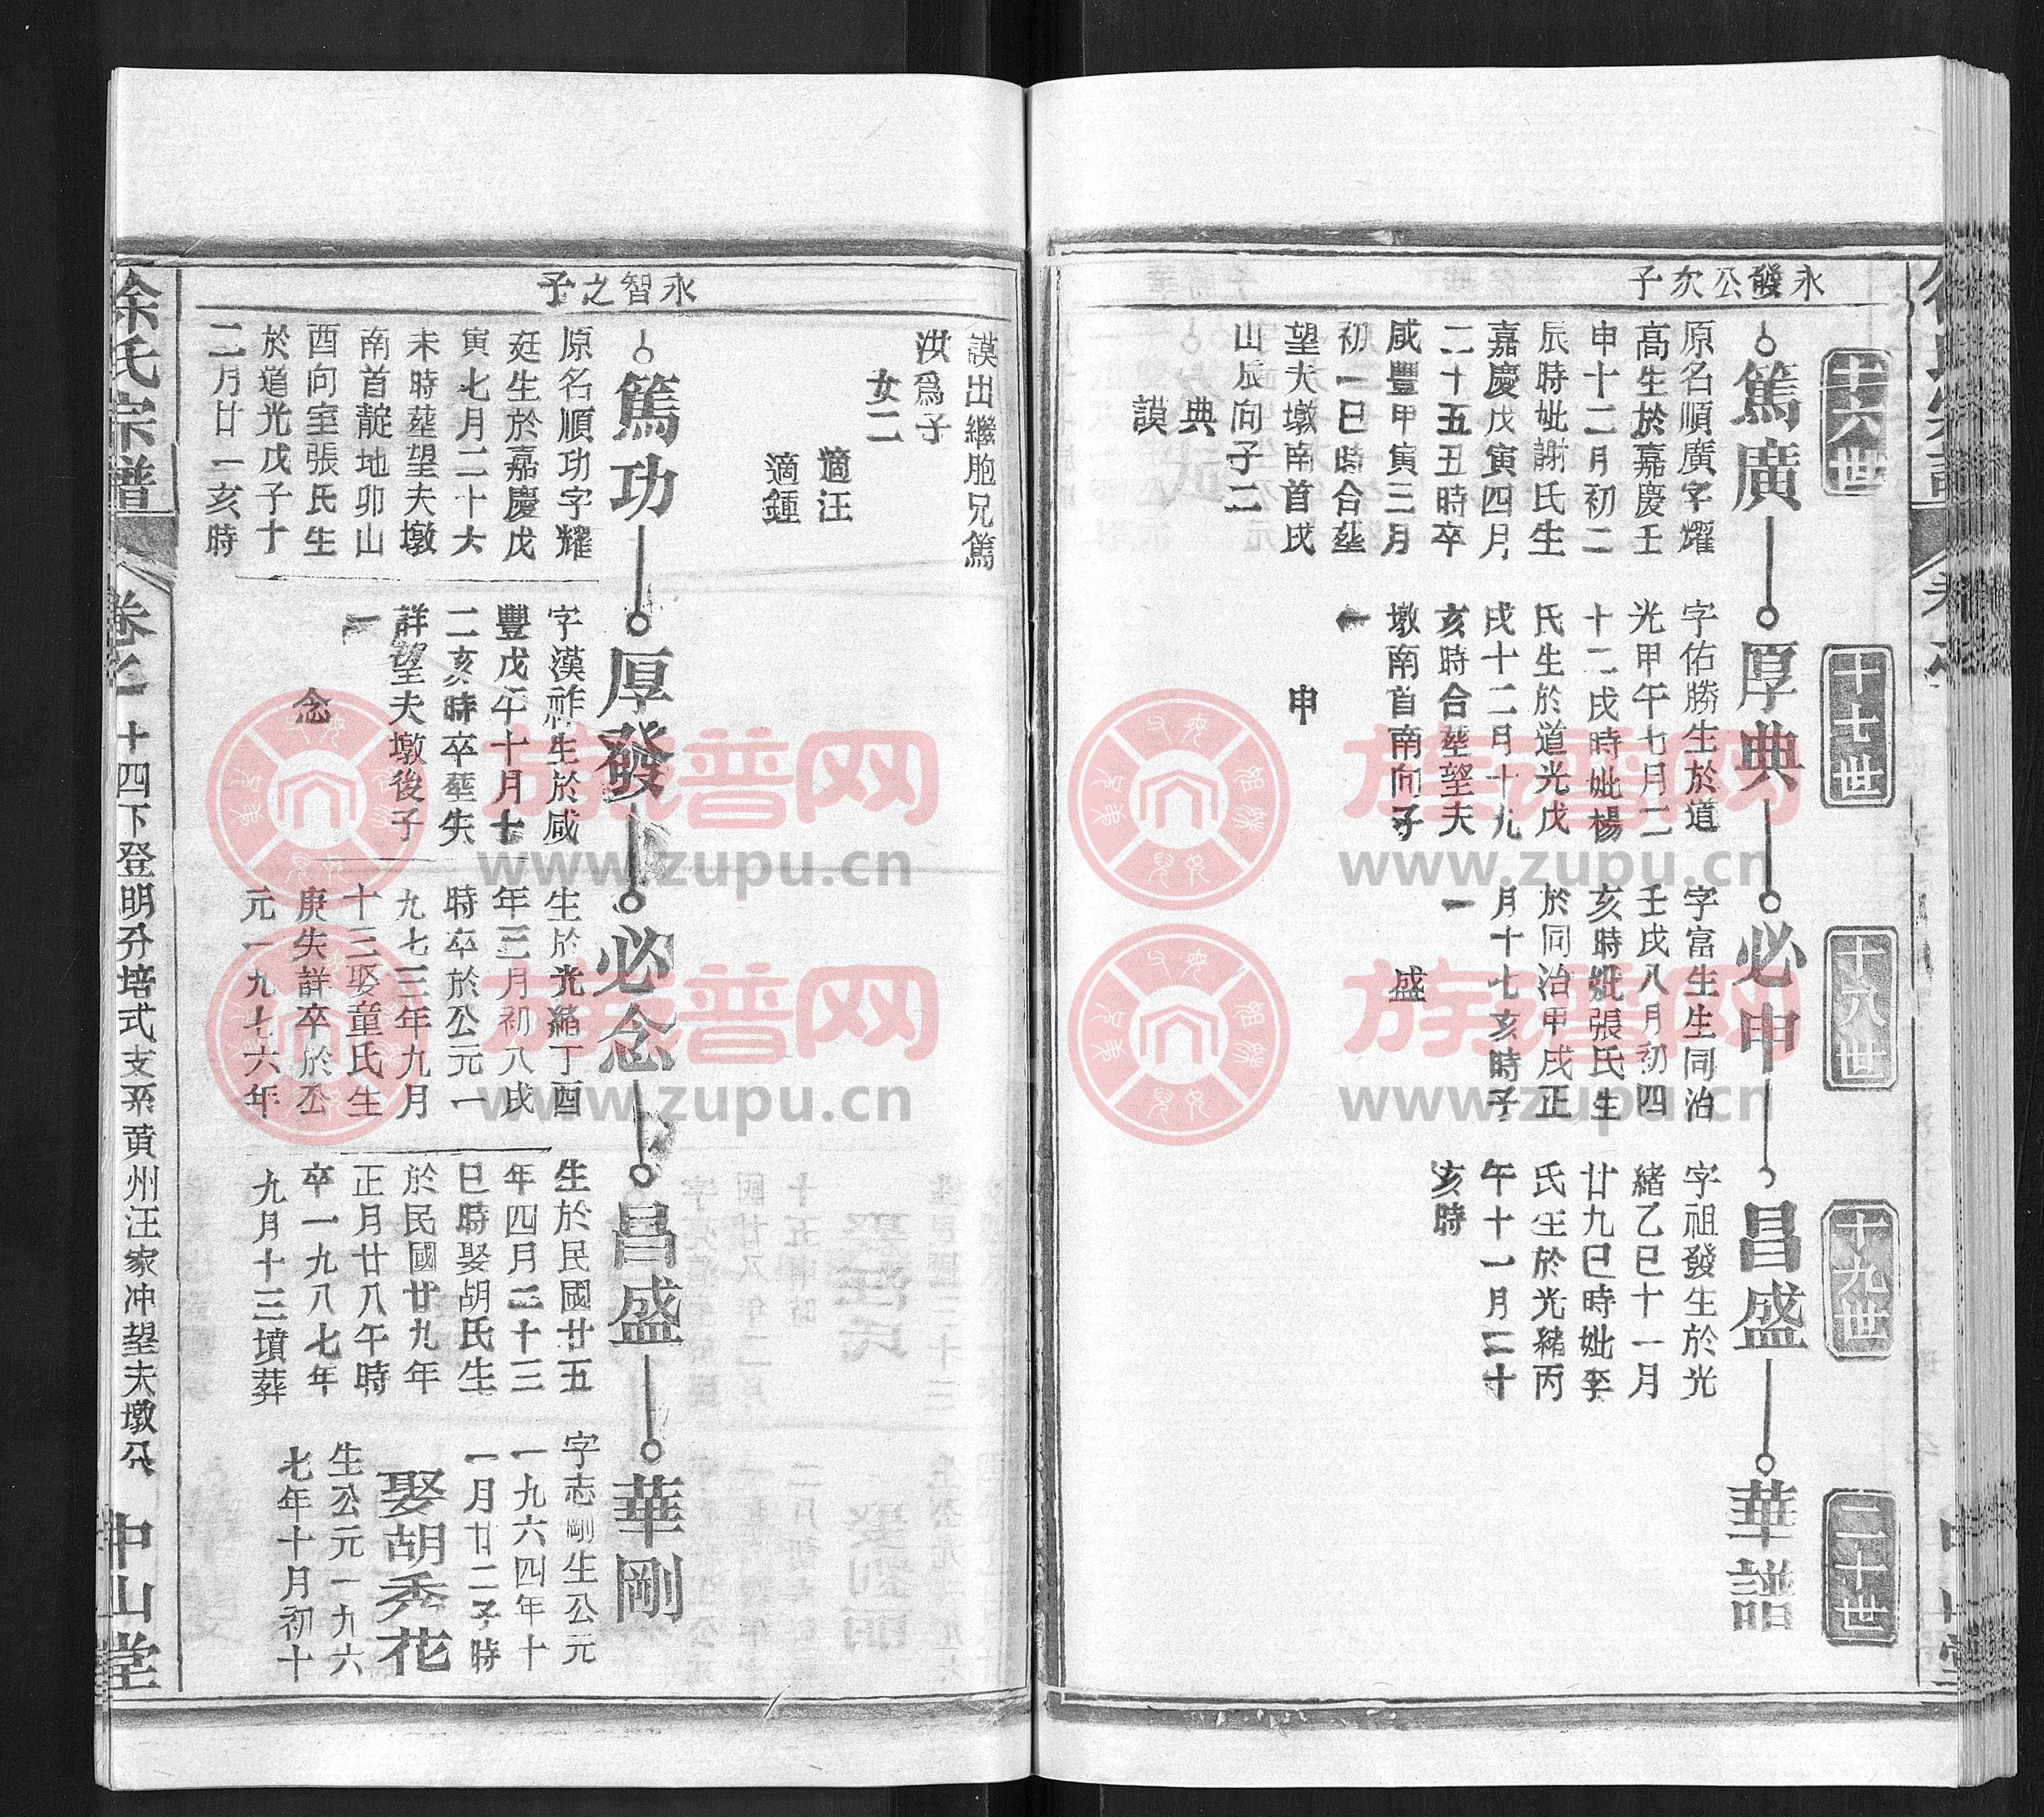 永發公次子
十六世
篤廣
原名順廣字耀
高生於嘉慶壬
申十二月初二
辰時妣謝氏生
嘉慶戊寅四月
二十五丑時卒
咸豐甲寅三月
初一巳時合塟
望夫墩南首戌
山辰向子二
典
謨
十七世
厚典
字佑勝生於道
光甲午七月二
十二戌時妣楊
氏生於道光戊
戌十二月十九
亥時合塟望夫
墩南首南向子
一
申
十八世
必申
字富生生同治
壬戌八月初四
亥時妣張氏生
於同治甲戌正
月十七亥時子
一
盛
十九世
昌盛
字祖發生於光
緒乙巳十一月
廿九巳時妣李
氏生於光緒丙
午十一月三十
亥時
二十世
華譜
謨出繼胞兄篤
洪爲子
女二
適汪
適鍾
永智之子
篤功
原名順功字耀
廷生於嘉慶戊
寅七月二十六
未時塟望夫墩
南首靛地卯山
酉向室張氏生
於道光戊子十
二月廿一亥時
厚發
字漢祚生於咸
豐戊午十月十
二亥時卒塟失
詳望夫墩後子
一
念
必念
生於光緒丁酉
年三月初八戌
時卒於公元一
九七三年九月
十三娶童氏生
庚失詳卒於公
元一九七六年
昌盛
生於民國廿五
年四月二十三
巳時娶胡氏生
於民國廿九年
正月廿八午時
卒一九八七年
九月十三墳葬
華剛
字志剛生公元
一九六四年十
一月廿二子時
娶胡秀花
生公元一九六
七年十月初十
徐氏宗譜
卷之一
十四下登明分培式支系黄州汪家冲望夫墩分
中山堂
族普网
www.zupu.cn
族普网
www.zupu.cn
族普网
www.zupu.cn
族普网
www.zupu.cn